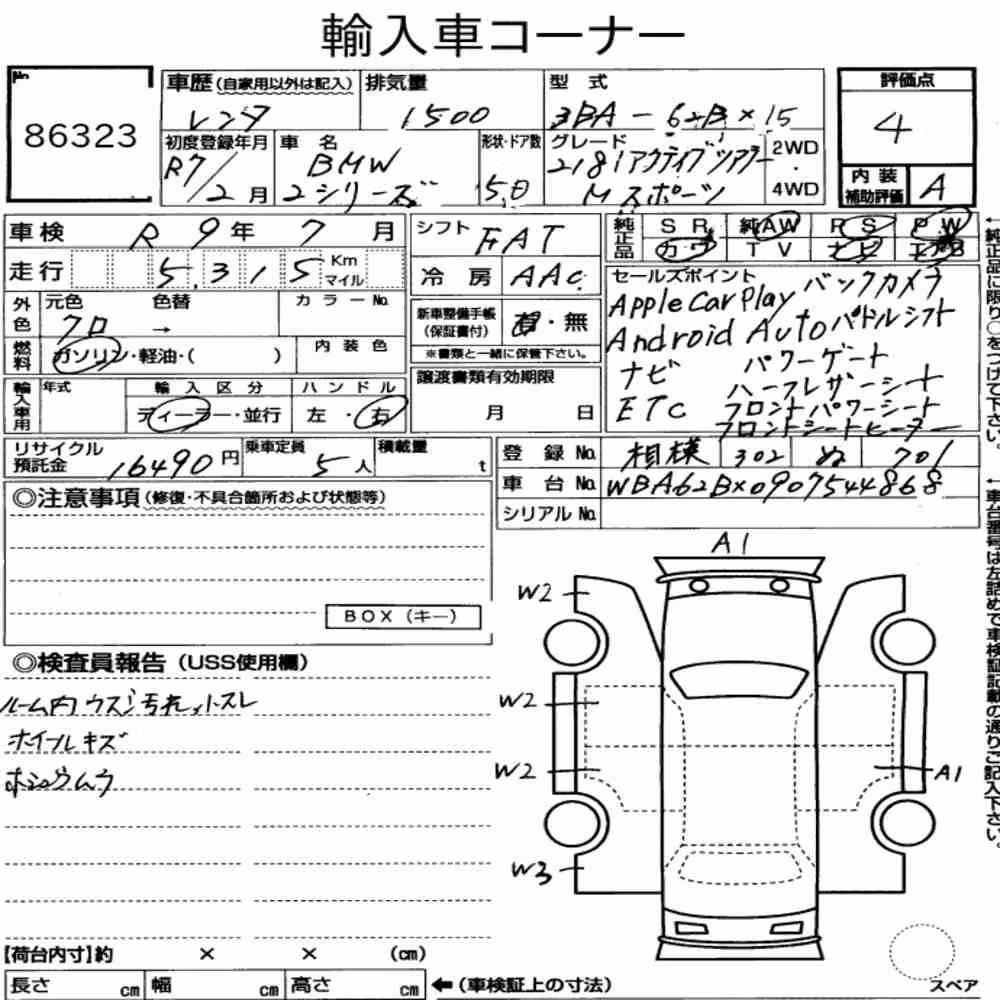 輸入車コーナー
No. 86323
車歴(自家用以外は記入) レンタ
排気量 1500
型式 3BA-62B×15
評価点 4
初度登録年月 R7/2月
車名 BMW 2シリーズ
形状・ドア数 5.D
グレード 218iアクティブツアラー Mスポーツ
2WD・4WD
内装補助評価 A
車検 R 9年 7月
シフト FAT
純正品 SR 純AW RS PW
カワ TV ナビ エアB
走行 5,315 Km マイル
冷房 AAC
セールスポイント
Apple CarPlay バックカメラ
Android Auto パドルシフト
ナビ パワーゲート
ハーフレザーシート
ETC フロントパワーシート
フロントシートヒーター
外色 元色 色替 カラーNo.
クロ →
新車整備手帳(保証書付) 有・無
※書類と一緒に保管下さい。
燃料 ガソリン・軽油・( ) 内装色
譲渡書類有効期限
月 日
輸入車用 年式 輸入区分 ハンドル
ディーラー・並行 左・右
リサイクル預託金 16490円
乗車定員 5人
積載量 t
登録No. 相模 302 ぬ 701
車台No. WBA62BX0907544868
シリアルNo.
◎注意事項(修復・不具合箇所および状態等)
BOX(キー)
◎検査員報告(USS使用欄)
ルーム内ウスジ汚れ、スレ
ホイールキズ
ホシュウムラ
A1
W2
W2
W2
A1
W3
【荷台内寸】約 × × (cm)
長さ cm 幅 cm 高さ cm ←(車検証上の寸法)
スペア
←純正品に限り○をつけて下さい。
←車台番号は左詰めで車検証記載の通りご記入下さい。